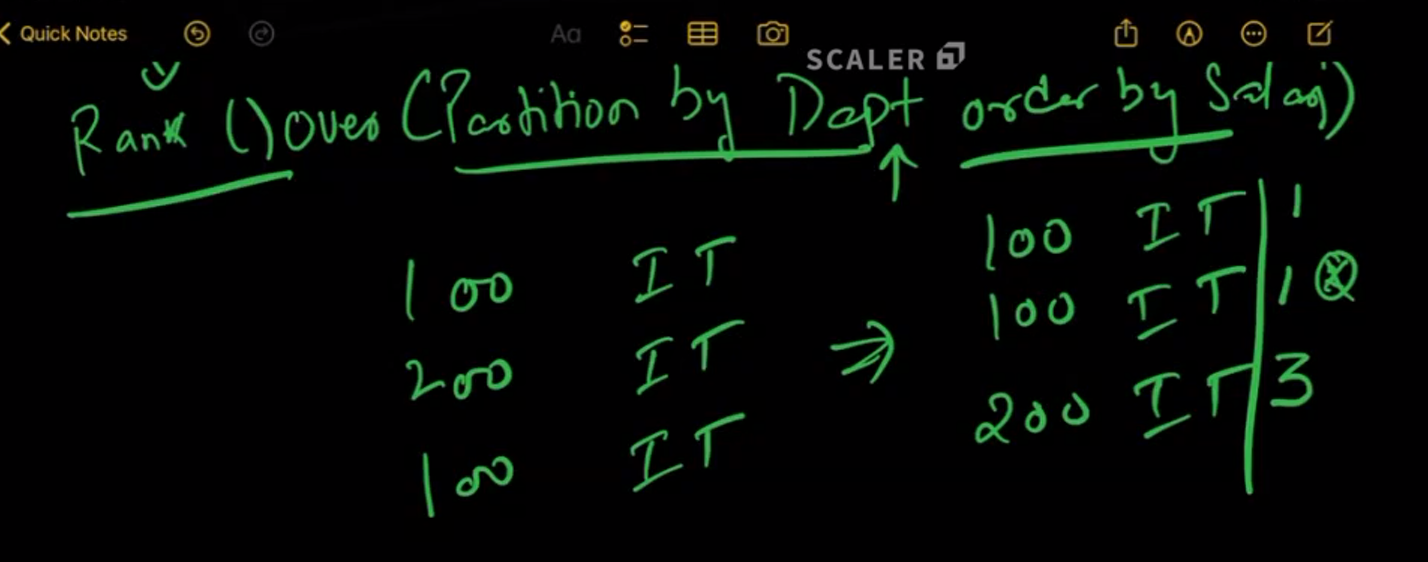 Quick Notes
Aa
SCALER
Rank () over (Partition by Dept order by Salary)
100 IT
200 IT
100 IT
100 IT 1
100 IT 1
200 IT 3